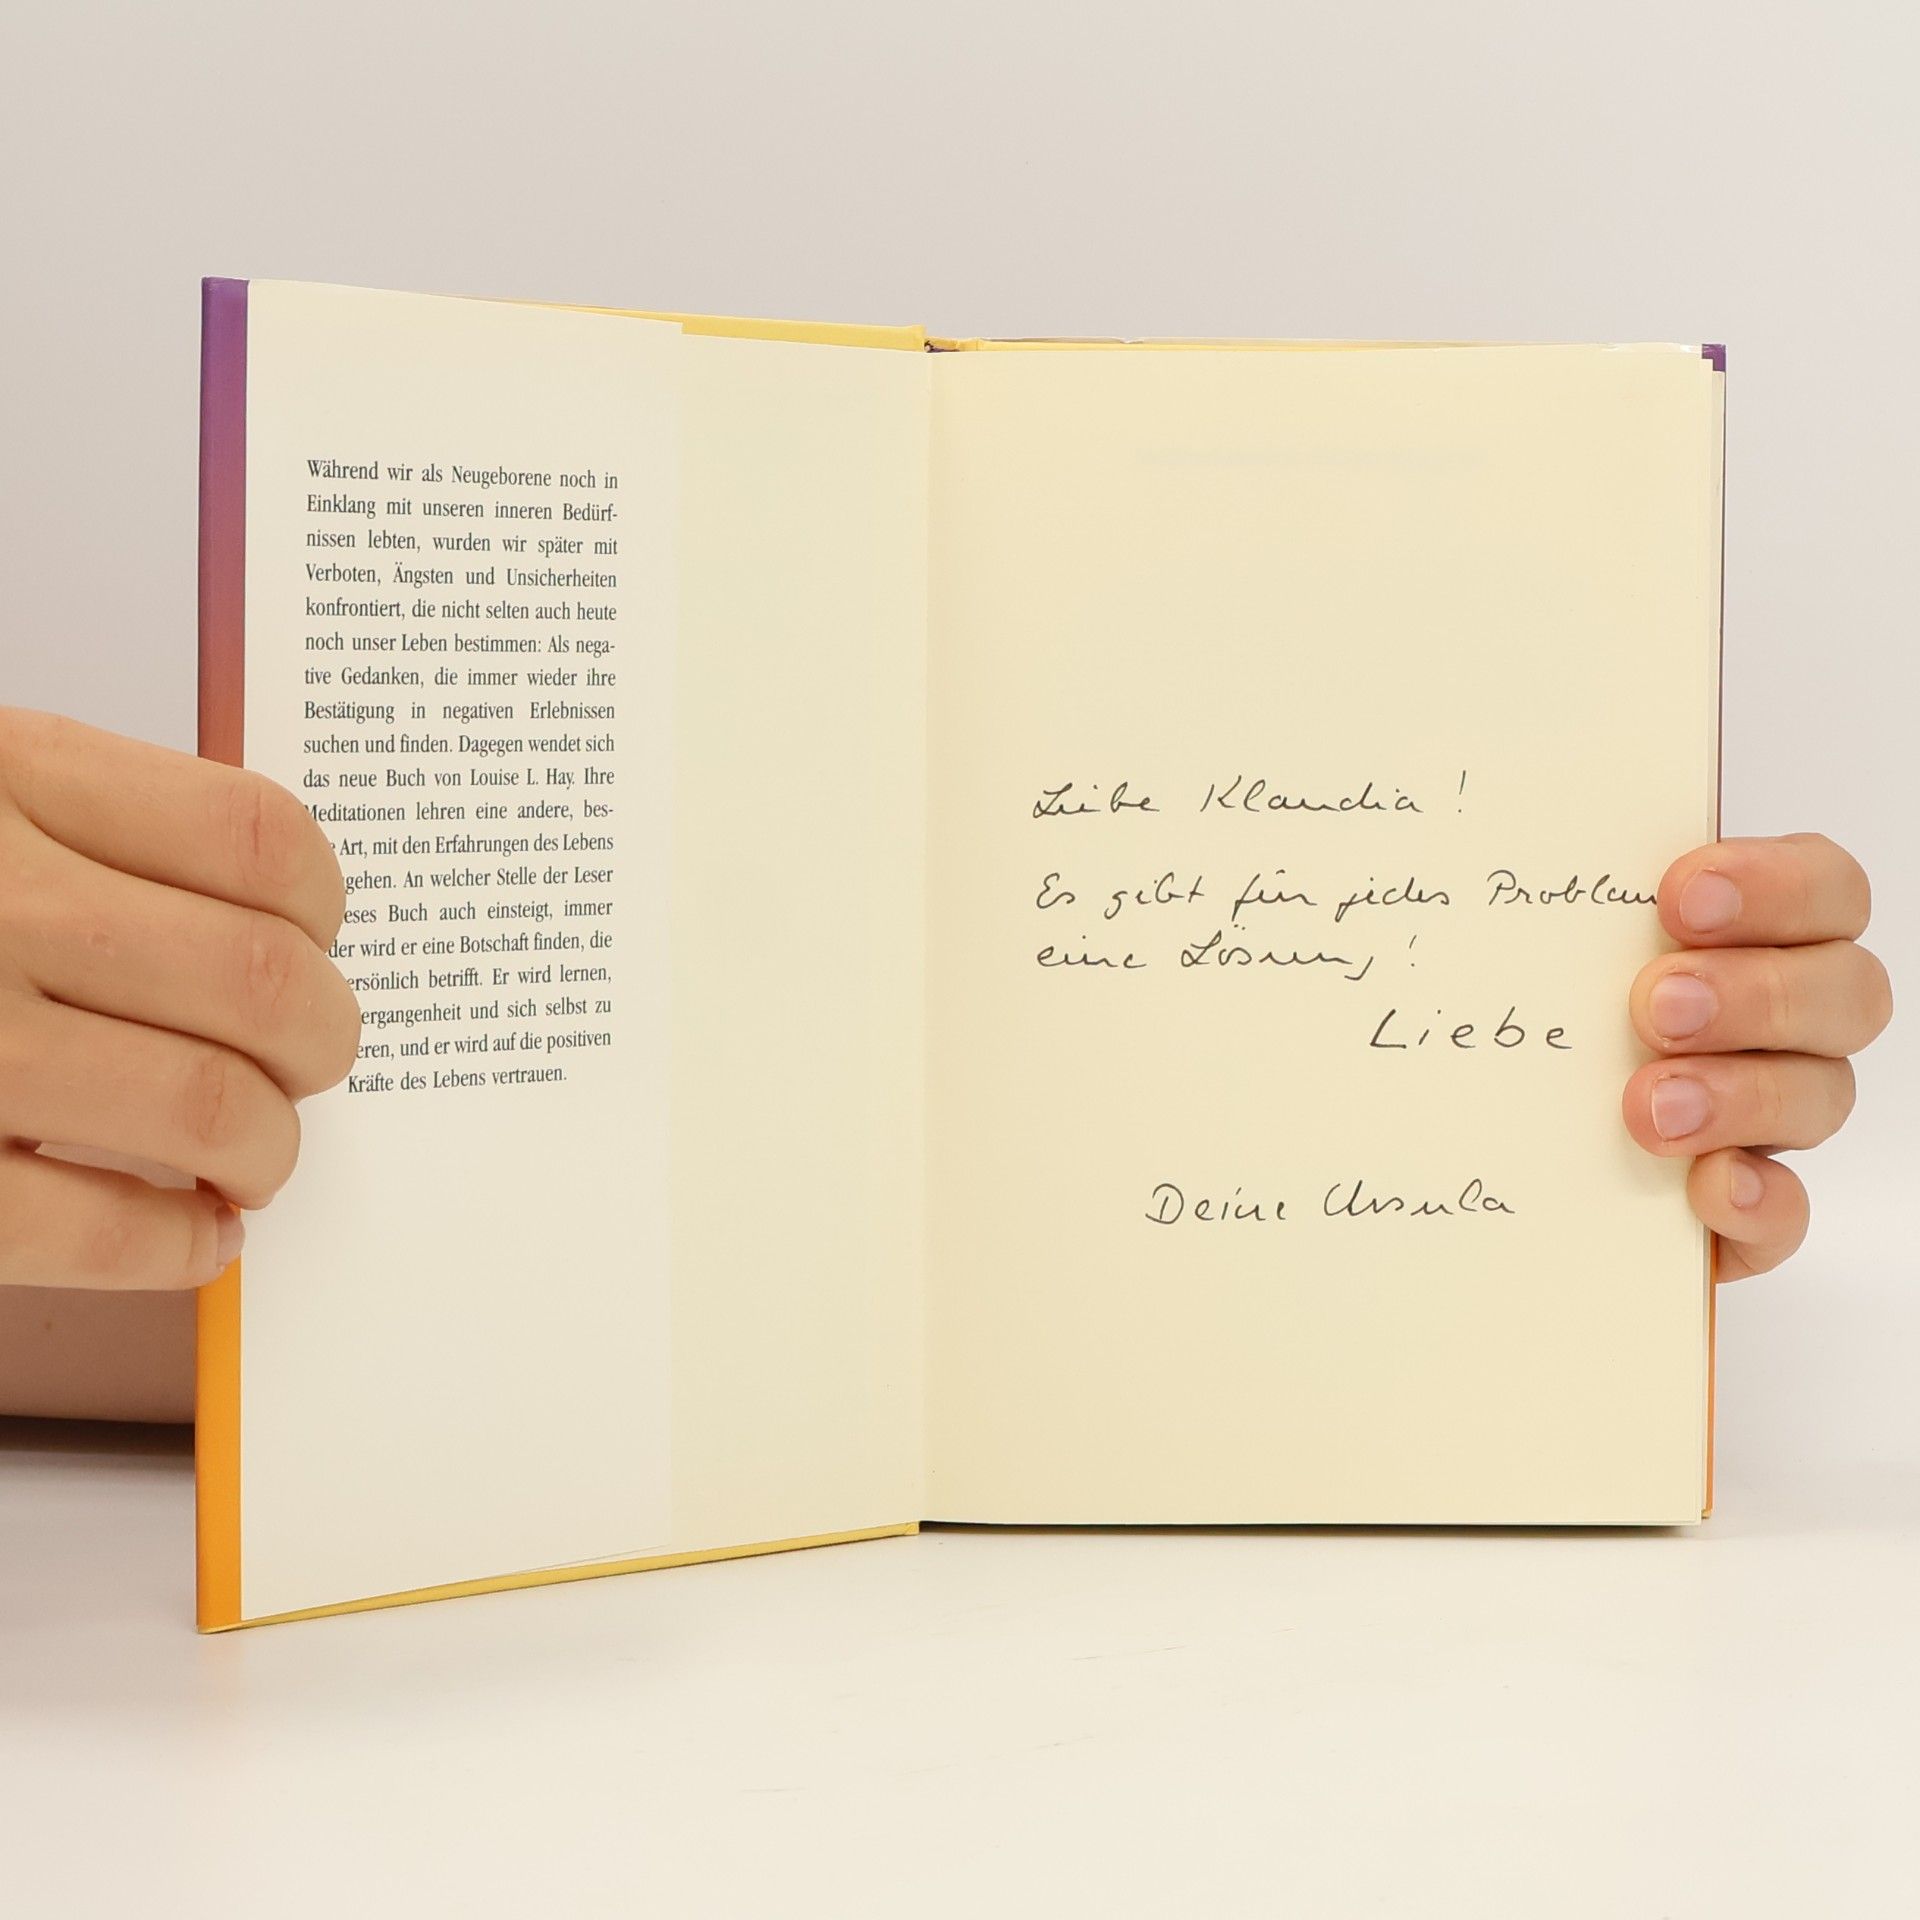 Während wir als Neugeborene noch in
Einklang mit unseren inneren Bedürf-
nissen lebten, wurden wir später mit
Verboten, Ängsten und Unsicherheiten
konfrontiert, die nicht selten auch heute
noch unser Leben bestimmen: Als nega-
tive Gedanken, die immer wieder ihre
Bestätigung in negativen Erlebnissen
suchen und finden. Dagegen wendet sich
das neue Buch von Louise L. Hay. Ihre
Meditationen lehren eine andere, bes-
Art, mit den Erfahrungen des Lebens
gehen. An welcher Stelle der Leser
eses Buch auch einsteigt, immer
der wird er eine Botschaft finden, die
ersönlich betrifft. Er wird lernen,
ergangenheit und sich selbst zu
eren, und er wird auf die positiven
Kräfte des Lebens vertrauen.
Liebe Klaudia !
Es gibt für jedes Problem
eine Lösung !
Liebe
Deine Ursula